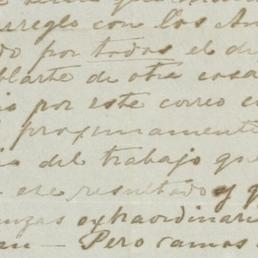 arreglo con los An
do por todos el di
blarte de otra cosa
io por este correo c
proximamente
io del trabajo que
ese resultado y q
anzas extraordinari
an — Pero vamos